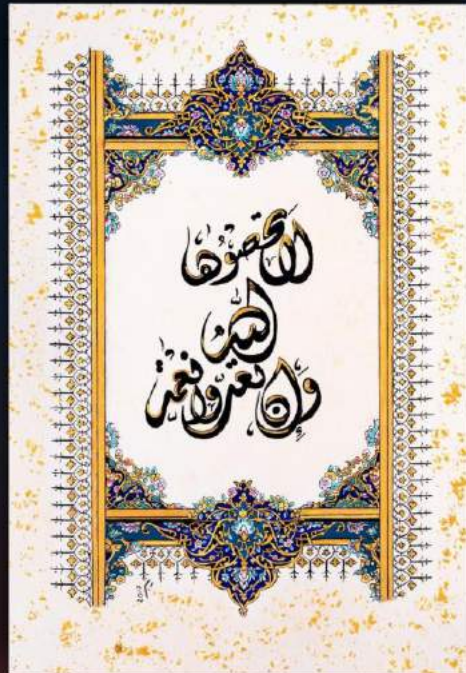 وَإِن تعدّوا نعمة
اللّه
لا تحصوها